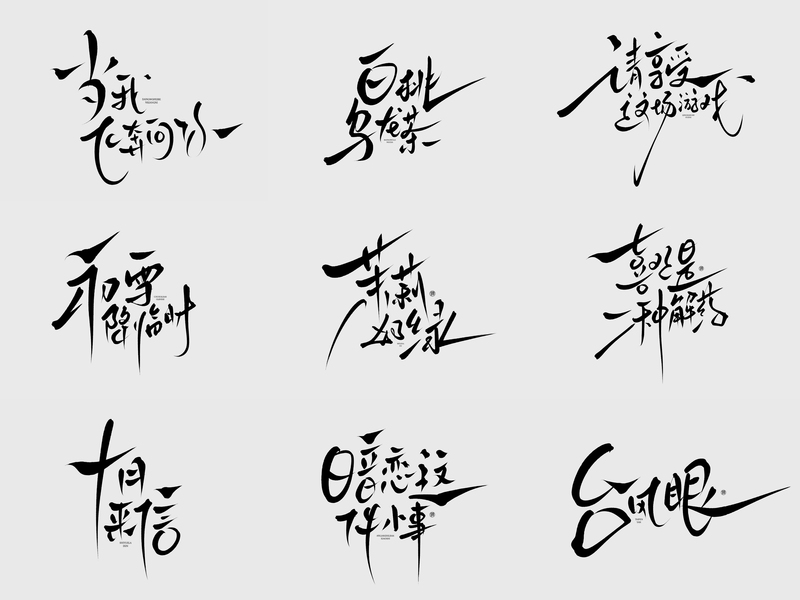 当我
飞奔向你
白桃
乌龙茶
请享受
这场游戏
初雪
降临时
茉莉
奶绿
喜欢是
一种解药
十月
来信
暗恋这
件小事
台风眼